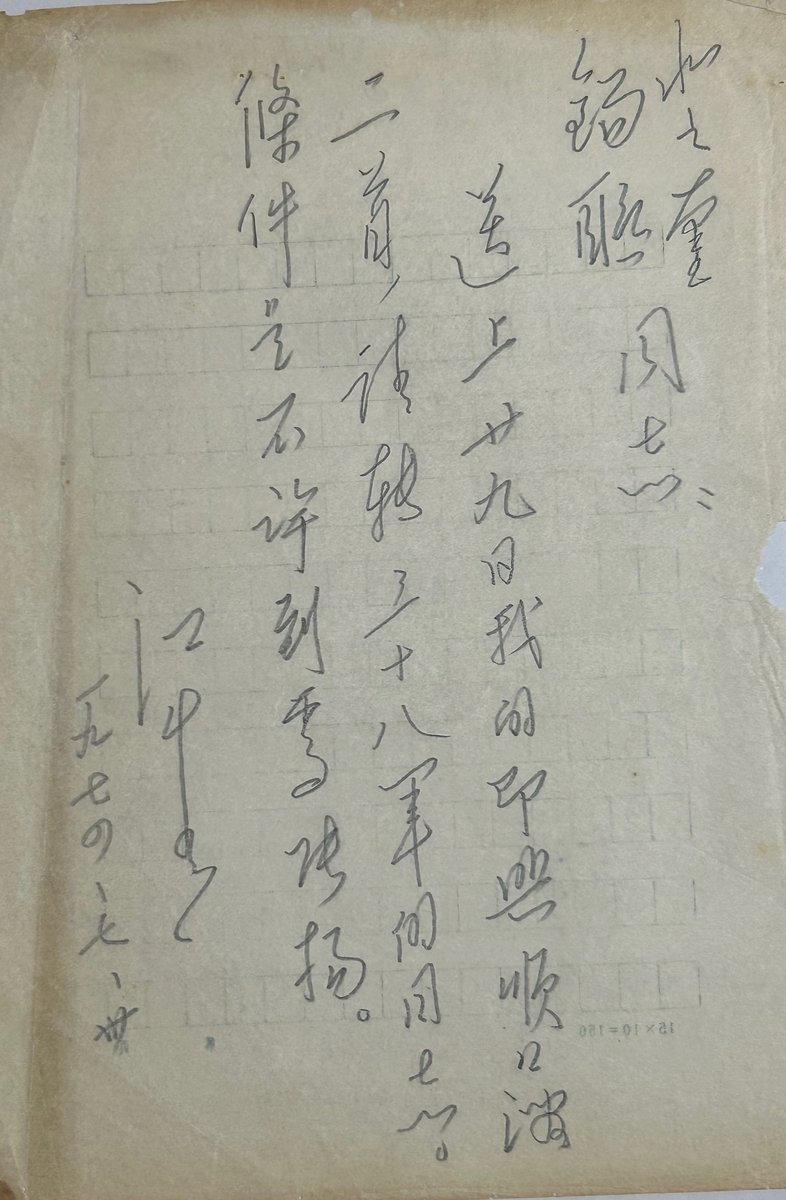 登奎
錫联
同志：
送上廿九日我的即照顺口溜
二首，请转三十八军的同志。
條件是不许到處张揚。
江青
一九七四、七、卅
15×10=150